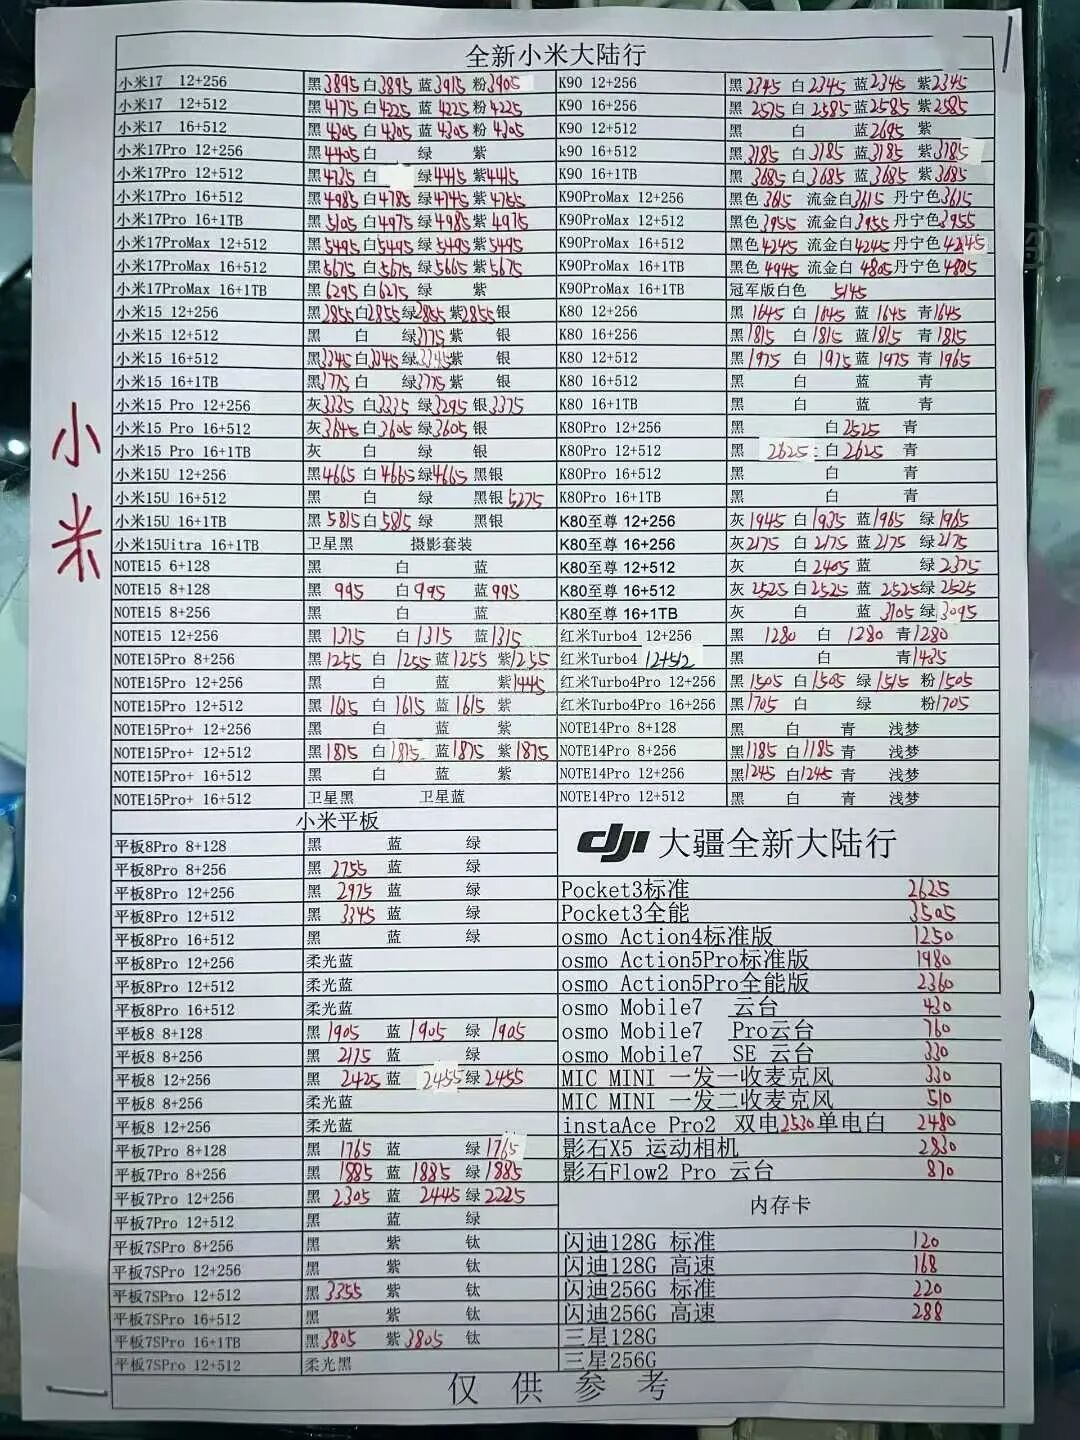 全新小米大陆行
小米17 12+256 黑3895 白3895 蓝3915 粉3905
小米17 12+512 黑4175 白4225 蓝4225 粉4225
小米17 16+512 黑4305 白4305 蓝4305 粉4305
小米17Pro 12+256 黑4405 白 绿 紫
小米17Pro 12+512 黑4735 白 绿4415 紫4415
小米17Pro 16+512 黑4985 白4785 绿4745 紫4755
小米17Pro 16+1TB 黑5105 白4975 绿4985 紫4975
小米17ProMax 12+512 黑5495 白5495 绿5495 紫5495
小米17ProMax 16+512 黑5675 白5675 绿5665 紫5675
小米17ProMax 16+1TB 黑6295 白6275 绿 紫
小米15 12+256 黑2855 白2855 绿2855 紫2855 银
小米15 12+512 黑 白 绿3175 紫 银
小米15 16+512 黑3345 白3345 绿3345 紫 银
小米15 16+1TB 黑3775 白 绿3775 紫 银
小米15 Pro 12+256 灰3335 白3335 绿3295 银3375
小米15 Pro 16+512 灰3645 白3605 绿3605 银
小米15 Pro 16+1TB 灰 白 绿 银
小米15U 12+256 黑4665 白4665 绿4665 黑银
小米15U 16+512 黑 白 绿 黑银5275
小米15U 16+1TB 黑5815 白5815 绿 黑银
小米15Uitra 16+1TB 卫星黑 摄影套装
NOTE15 6+128 黑 白 蓝
NOTE15 8+128 黑995 白995 蓝995
NOTE15 8+256 黑 白 蓝
NOTE15 12+256 黑1315 白1315 蓝1315
NOTE15Pro 8+256 黑1255 白1255 蓝1255 紫1255
NOTE15Pro 12+256 黑 白 蓝 紫1445
NOTE15Pro 12+512 黑1615 白1615 蓝1615 紫
NOTE15Pro+ 12+256 黑 白 蓝 紫
NOTE15Pro+ 12+512 黑1875 白1875 蓝1875 紫1875
NOTE15Pro+ 16+512 黑 白 蓝 紫
NOTE15Pro+ 16+512 卫星黑 卫星蓝
K90 12+256 黑2345 白2345 蓝2345 紫2345
K90 16+256 黑2575 白2585 蓝2585 紫2585
K90 12+512 黑 白 蓝2695 紫
k90 16+512 黑3185 白3185 蓝3185 紫3185
K90 16+1TB 黑3685 白3685 蓝3685 紫3685
K90ProMax 12+256 黑色3615 流金白3615 丹宁色3615
K90ProMax 16+512 黑色3955 流金白3955 丹宁色3955
K90ProMax 16+512 黑色4245 流金白4245 丹宁色4245
K90ProMax 16+1TB 黑色4945 流金白4805 丹宁色4805
K90ProMax 16+1TB 冠军版白色 5145
K80 12+256 黑1645 白1645 蓝1645 青1645
K80 16+256 黑1815 白1815 蓝1815 青1815
K80 12+512 黑1975 白1975 蓝1975 青1965
K80 16+512 黑 白 蓝 青
K80 16+1TB 黑 白 蓝 青
K80Pro 12+256 黑 白2525 青
K80Pro 12+512 黑 2625 白2625 青
K80Pro 16+512 黑 白 青
K80Pro 16+1TB 黑 白 青
K80至尊 12+256 灰1945 白1935 蓝1965 绿1965
K80至尊 16+256 灰2175 白2175 蓝2175 绿2175
K80至尊 12+512 灰 白2405 蓝 绿2375
K80至尊 16+512 灰2525 白2525 蓝2525 绿2525
K80至尊 16+1TB 灰 白 蓝3105 绿3095
红米Turbo4 12+256 黑1280 白1280 青1280
红米Turbo4 12+512 黑 白 青1435
红米Turbo4Pro 12+256 黑1505 白1505 绿1515 粉1505
红米Turbo4Pro 16+256 黑1705 白 绿 粉1705
NOTE14Pro 8+128 黑 白 青 浅梦
NOTE14Pro 8+256 黑1185 白1185 青 浅梦
NOTE14Pro 12+256 黑1245 白1245 青 浅梦
NOTE14Pro 12+512 黑 白 青 浅梦
小米
小米平板
平板8Pro 8+128 黑 蓝 绿
平板8Pro 8+256 黑2755 蓝 绿
平板8Pro 12+256 黑2975 蓝 绿
平板8Pro 12+512 黑3345 蓝 绿
平板8Pro 16+512 黑 蓝 绿
平板8Pro 12+256 柔光蓝
平板8Pro 12+512 柔光蓝
平板8Pro 16+512 柔光蓝
平板8 8+128 黑1905 蓝1905 绿1905
平板8 8+256 黑2175 蓝 绿
平板8 12+256 黑2425 蓝2455 绿2455
平板8 8+256 柔光蓝
平板8 12+256 柔光蓝
平板7Pro 8+128 黑1765 蓝 绿1765
平板7Pro 8+256 黑1885 蓝1885 绿1885
平板7Pro 12+256 黑2305 蓝2445 绿2225
平板7Pro 12+512 黑 蓝 绿
平板7SPro 8+256 黑 紫 钛
平板7SPro 12+256 黑 紫 钛
平板7SPro 12+512 黑3355 紫 钛
平板7SPro 16+512 黑 紫 钛
平板7SPro 16+1TB 黑3805 紫3805 钛
平板7SPro 12+512 柔光黑
dji 大疆全新大陆行
Pocket3标准 2625
Pocket3全能 3505
osmo Action4标准版 1250
osmo Action5Pro标准版 1980
osmo Action5Pro全能版 2360
osmo Mobile7 云台 430
osmo Mobile7 Pro云台 760
osmo Mobile7 SE 云台 330
MIC MINI 一发一收麦克风 330
MIC MINI 一发二收麦克风 510
instaAce Pro2 双电2530单电白 2480
影石X5 运动相机 2830
影石Flow2 Pro 云台 870
内存卡
闪迪128G 标准 120
闪迪128G 高速 168
闪迪256G 标准 220
闪迪256G 高速 288
三星128G
三星256G
仅供参考